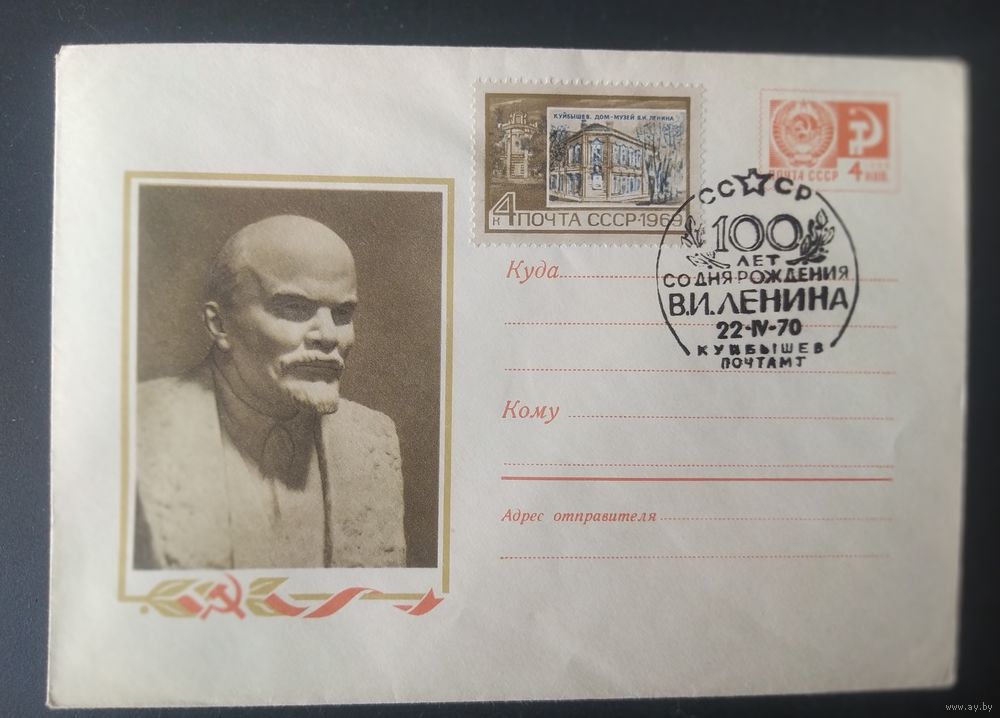 КУЙБЫШЕВ. ДОМ-МУЗЕЙ В.И. ЛЕНИНА
4 К ПОЧТА СССР·1969
ПОЧТА СССР 4 КОП.
СССР
100
ЛЕТ
СО ДНЯ РОЖДЕНИЯ
В.И.ЛЕНИНА
22-IV-70
КУЙБЫШЕВ
ПОЧТАМТ
Куда
Кому
Адрес отправителя
www.ay.by